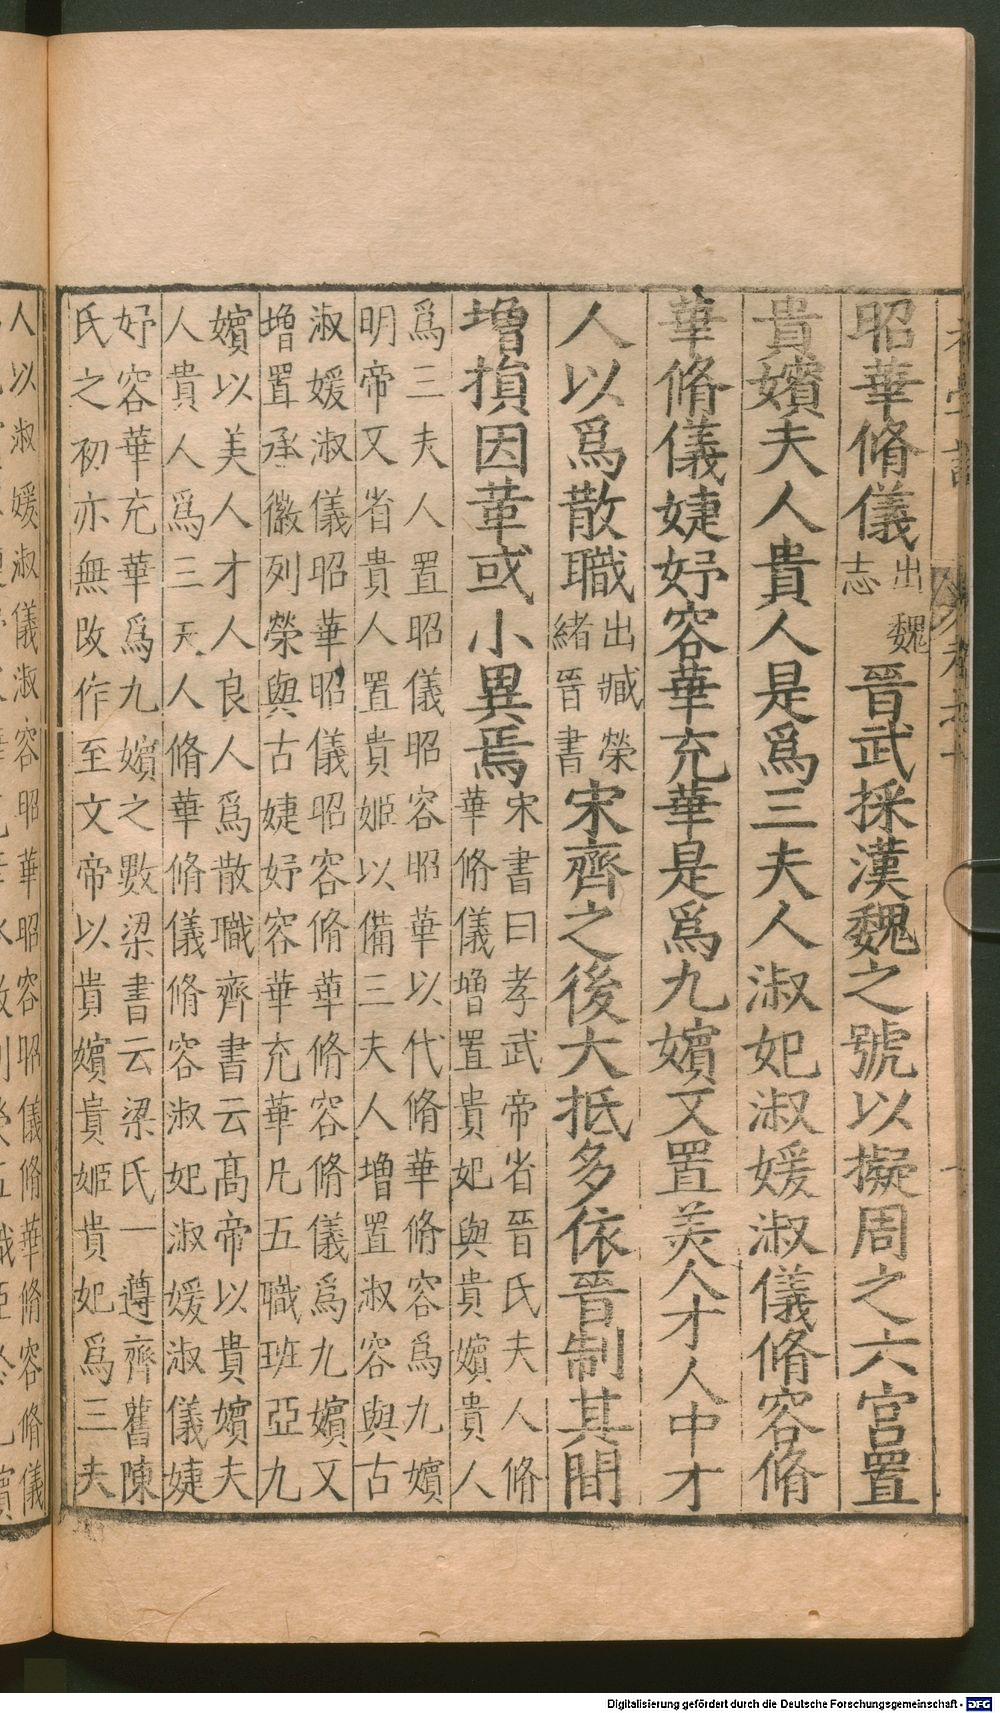 昭華脩儀出魏志晉武採漢魏之號以擬周之六宫置
貴嬪夫人貴人是爲三夫人淑妃淑媛淑儀脩容脩
華脩儀婕妤容華充華是爲九嬪又置美人才人中才
人以爲散職出臧榮緒晉書宋齊之後大抵多依晉制其間
增損因革或小異焉宋書曰孝武帝省晉氏夫人脩
華脩儀增置貴妃與貴嬪貴人
爲三夫人置昭儀昭容昭華以代脩華脩容爲九嬪
明帝又省貴人置貴姬以備三夫人增置淑容與古
淑媛淑儀昭華昭儀昭容脩華脩容脩儀爲九嬪又
增置承徽列榮與古婕妤容華充華凡五職班亞九
嬪以美人才人良人爲散職齊書云髙帝以貴嬪夫
人貴人爲三夫人脩華脩儀脩容淑妃淑媛淑儀婕
妤容華充華爲九嬪之數梁書云梁氏一遵齊舊陳
氏之初亦無改作至文帝以貴嬪貴姬貴妃爲三夫
人以淑媛淑儀淑容昭華昭容昭儀脩華脩容脩儀
Digitalisierung gefördert durch die Deutsche Forschungsgemeinschaft - DFG